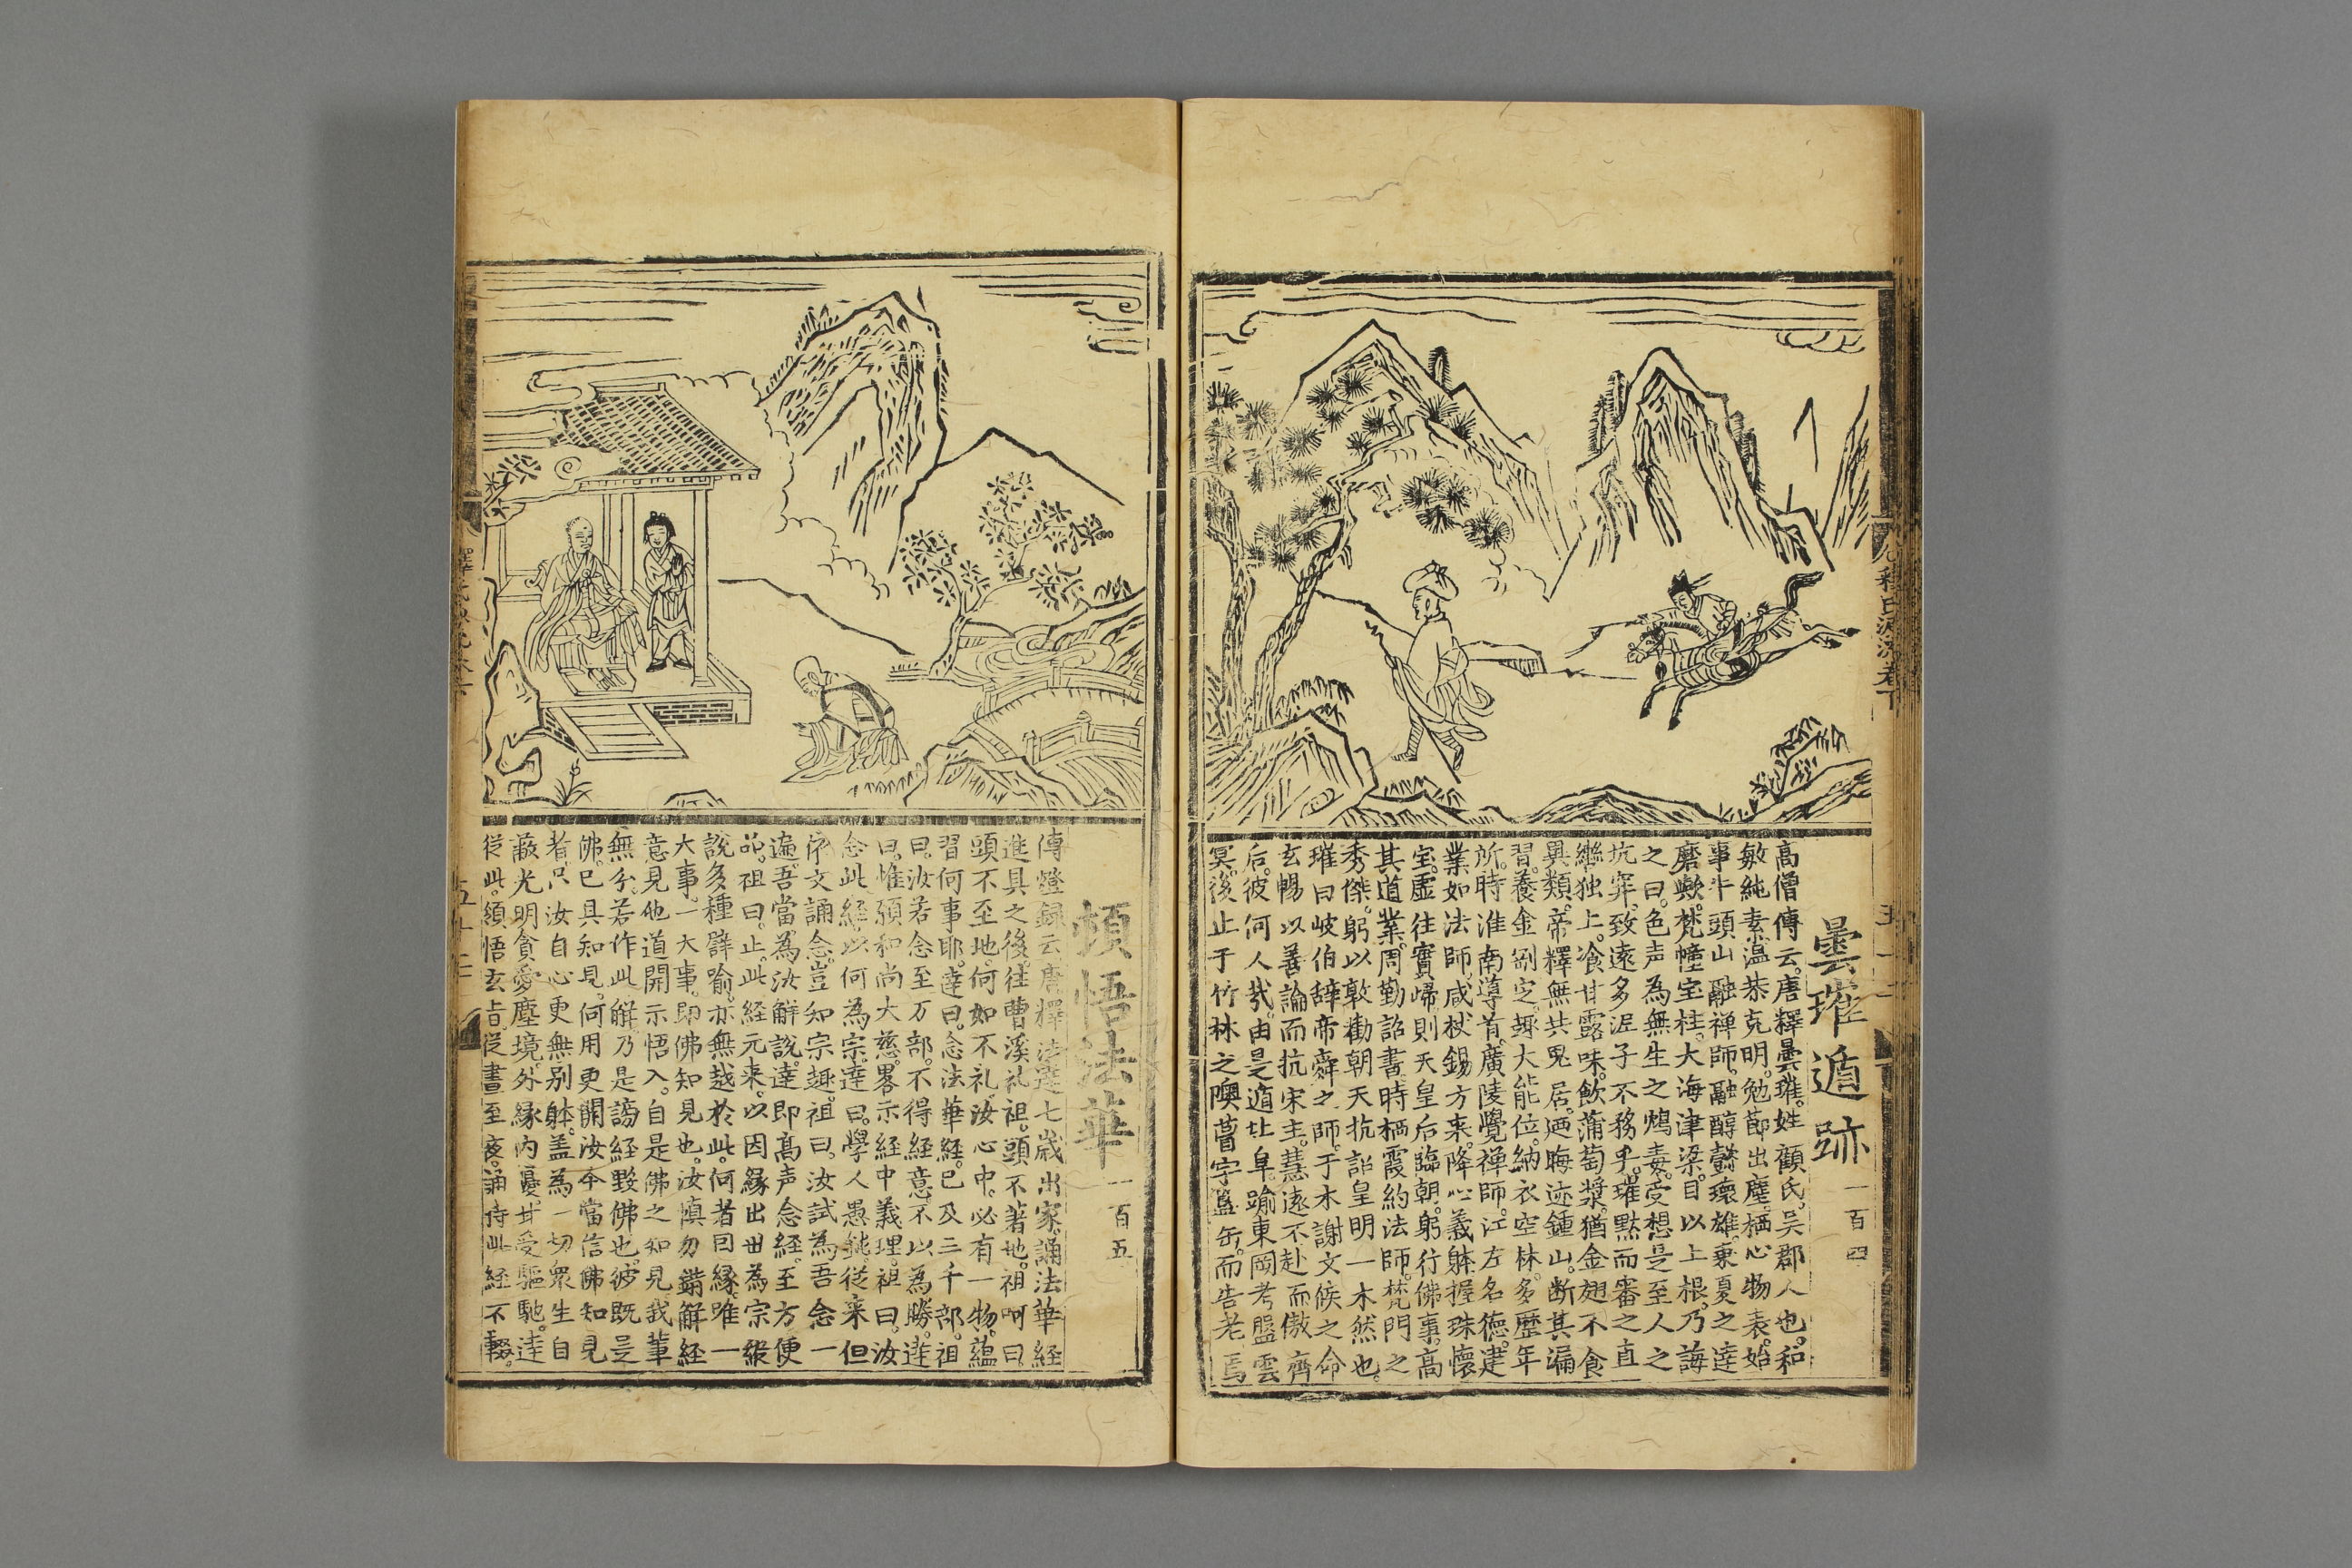 釋氏源流卷下
曇璀遁跡 一百四
高僧傳云。唐釋曇璀。姓顧氏。吳郡人也。和
敏純素。溫恭克明。勉節出塵。栖心物表。始
事牛頭山融禪師。融醇懿瓌雄。東夏之達
磨歟。梵幢宝柱。大海津梁。目以上根。乃誨
之曰。色声為無生之鴆毒。受想是至人之
坑穽。致遠多泥。子不務乎。璀黙而審之。直
轡独上。飡甘露味。飲蒲萄漿。猶金翅不食
異類。帝釋無共鬼居。迺晦迹鍾山。断其漏
習。養金剛定。趣大能位。納衣空林。多歷年
所。時淮南導首。廣陵覺禅師。江左名德。建
業如法師。咸杖錫方来。降心義躰。握珠懷
宝。虛往實歸。則天皇后臨朝。躬行佛事。高
其道業。周勤詔書。時栖霞約法師。梵門之
秀傑。躬以敦勸朝天抗詔。皇明一木然也。
璀曰岐伯辞帝舜之師。于木謝文候之命
玄暢以善論而抗宋主。慧遠不赴而傲齊
后。彼何人哉。由是遁北阜。踰東岡考盤雲
冥。後止于竹林之隩。薈宇盆缶。而告老焉
頓悟法華 一百五
傳燈録云。唐釋法達七歲出家誦法華経
進具之後。往曹溪礼祖。頭不著地。祖呵曰
頭不至地。何如不礼。汝心中必有一物。蘊
習何事耶。達曰。念法華經。已及三千部。祖
曰。汝若念至万部。不得経意。不以為勝。達
曰。惟願和尚大慈。畧示経中義理。祖曰。汝
念此経。以何為宗。達曰。學人愚鈍。従来但
依文誦念。豈知宗趣。祖曰。汝試為吾念一
遍。吾當為汝解說。達即高声念経。至方便
品。祖曰。止。此経元来。以因緣出世為宗。縱
說多種辟喻。亦無越於此。何者曰緣。唯一
大事。一大事。即佛知見也。汝慎勿錯解経
意見他道開示悟入。自是佛之知見我輩
無分。若作此解。乃是謗経毀佛也。彼既是
佛。已具知見。何用更開汝今當信佛知見
者。只汝自心更無别躰。盖為一切眾生自
蔽光明貪愛塵境。外緣內擾。甘受驅馳。達
従此。頓悟玄旨。従晝至夜。誦侍此経不輟。